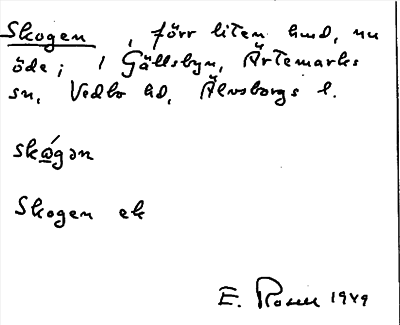 Skogen, förr liten hmd, nu
öde; i Gällsbyn, Ärtemarks
sn, Vedbo hd, Älvsborgs l.
skógən
Skogen ek
E. Rosell 1949